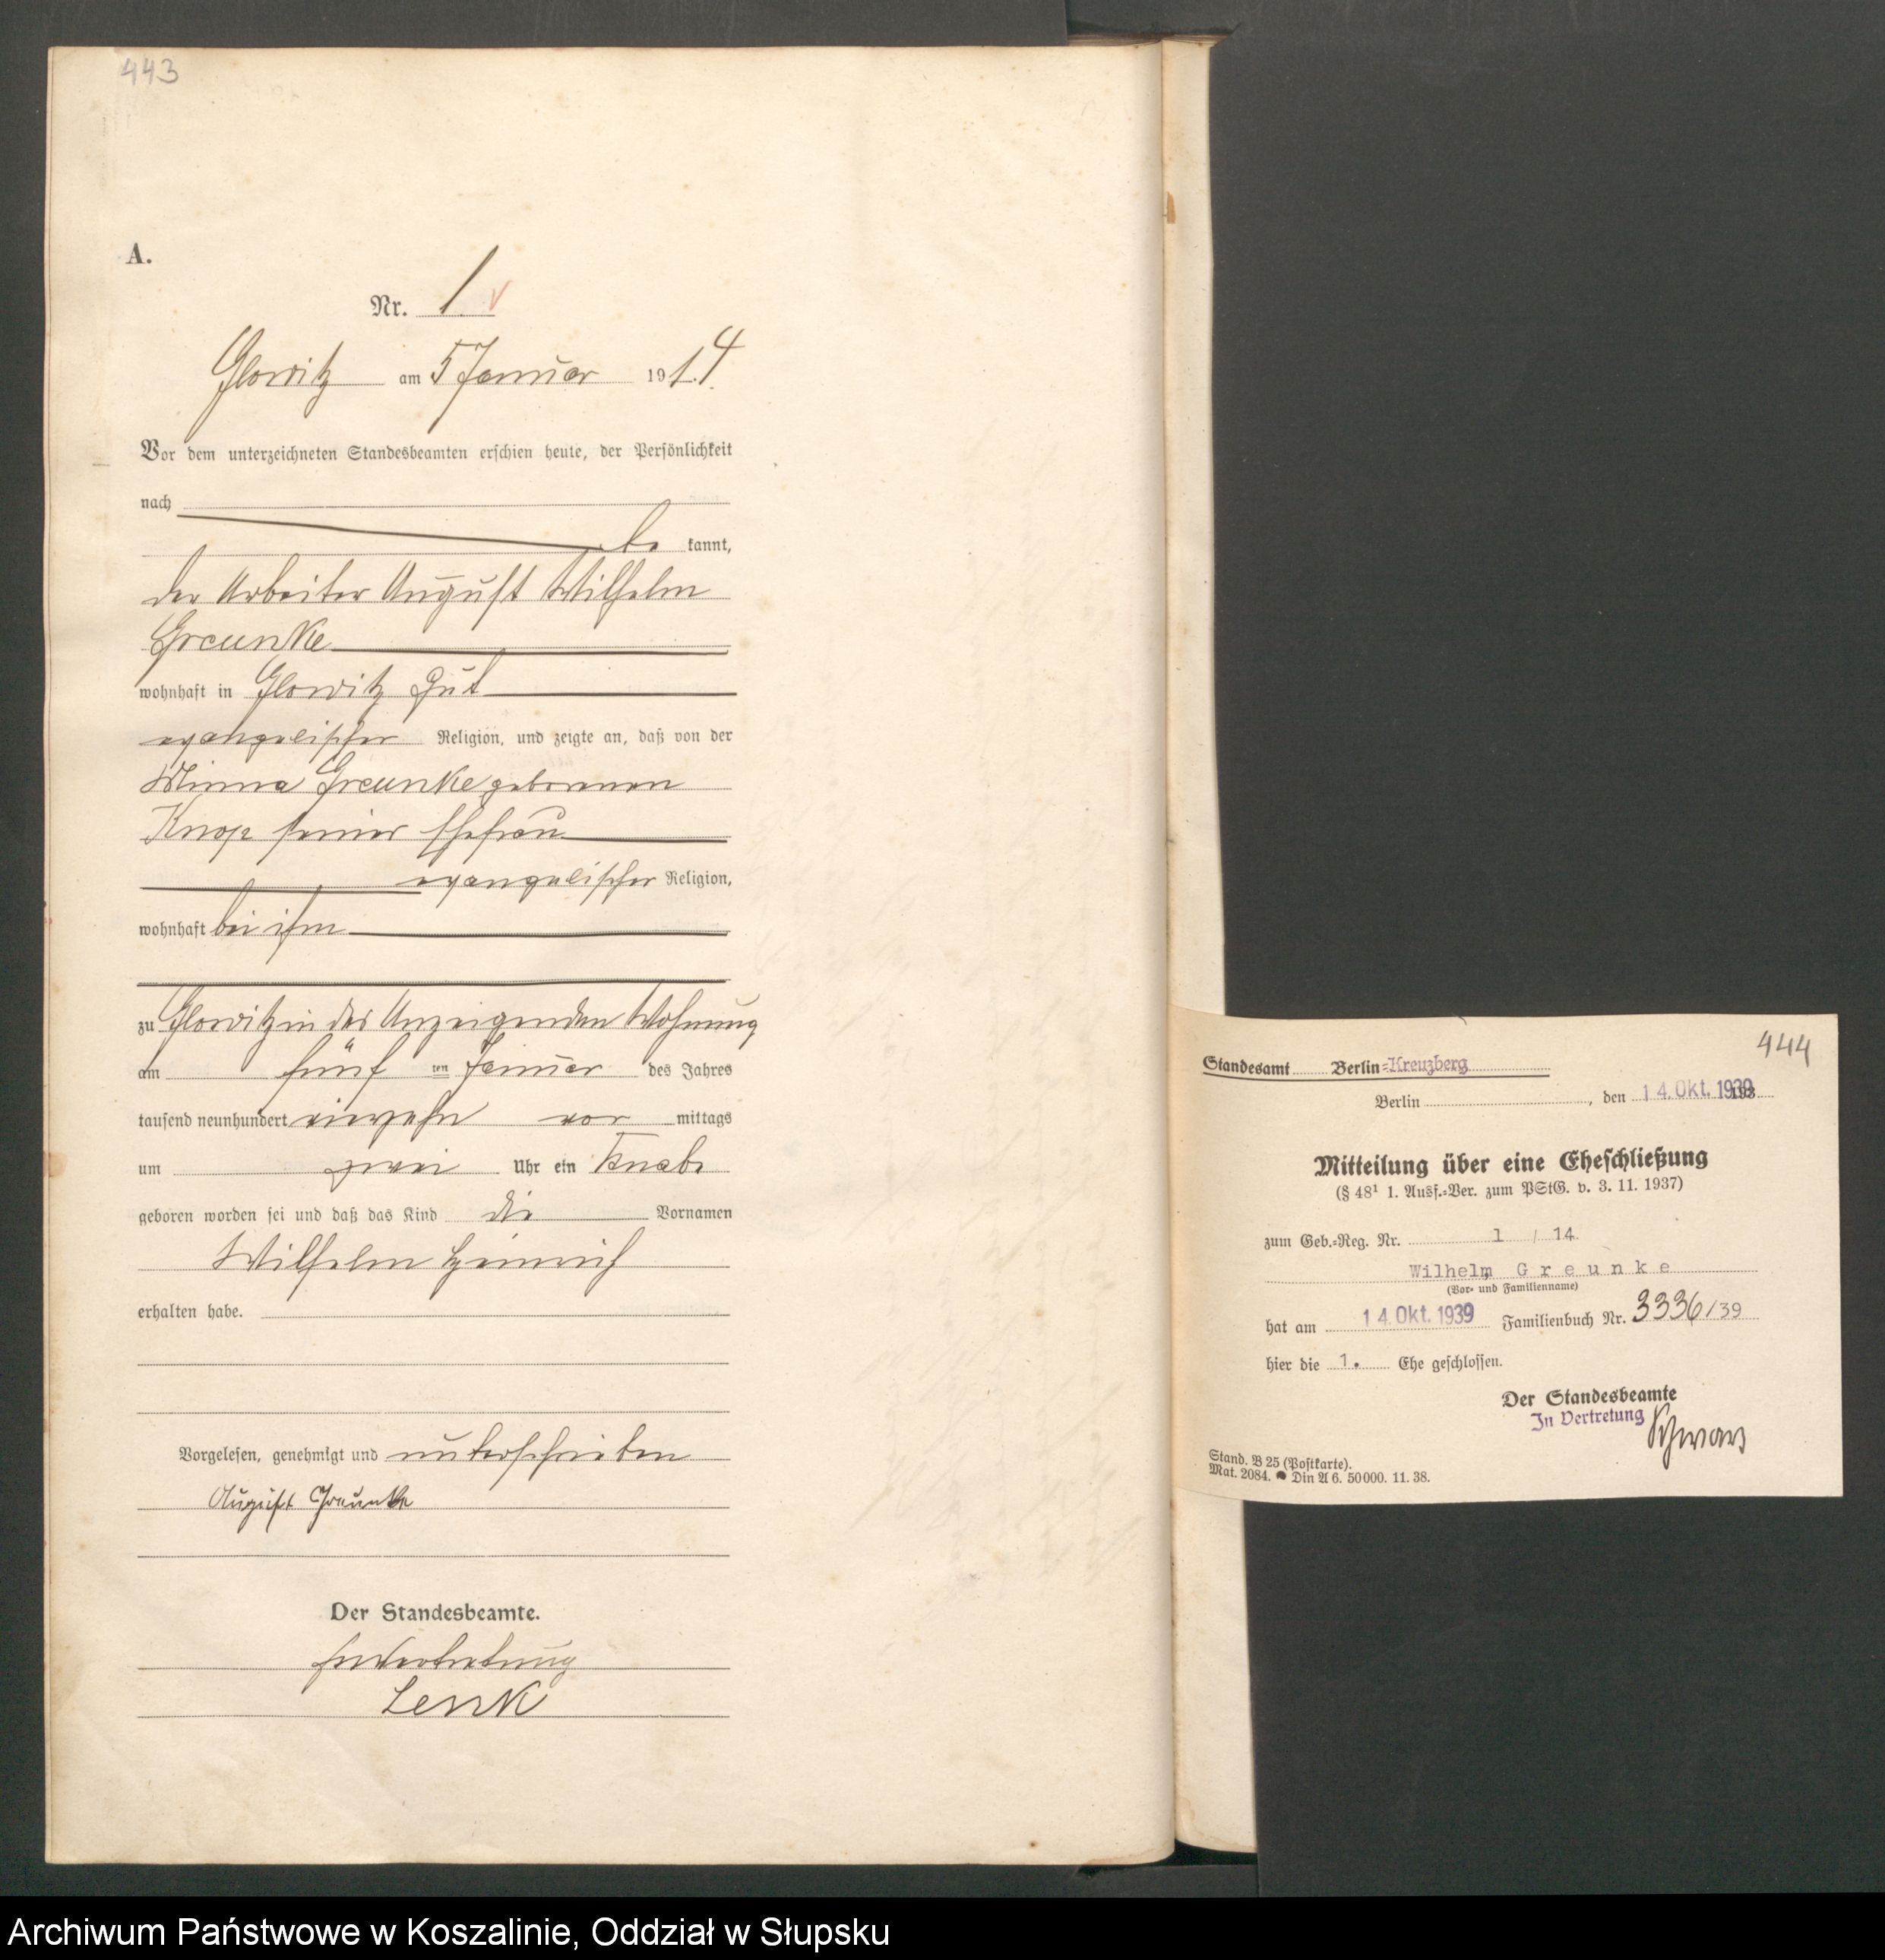 443
A.
Nr. 1.
Glowitz am 5 Januar 1914.
Vor dem unterzeichneten Standesbeamten erschien heute, der Persönlichkeit
nach
be kannt,
der Arbeiter August Wilhelm
Greunke
wohnhaft in Glowitz Gut
evangelischer Religion, und zeigte an, daß von der
Minna Greunke geborenen
Knop seiner Ehefrau
evangelischer Religion,
wohnhaft bei ihm
zu Glowitz in des Anzeigenden Wohnung
am fünf ten Januar des Jahres
tausend neunhundert vierzehn vor mittags
um zwei Uhr ein Knabe
geboren worden sei und daß das Kind die Vornamen
Wilhelm Heinrich
erhalten habe.
Vorgelesen, genehmigt und unterschrieben
August Greunke
Der Standesbeamte.
In Vertretung
Lenk
444
Standesamt Berlin-Kreuzberg
Berlin, den 14. Okt. 1939
Mitteilung über eine Eheschließung
(§ 48¹ 1. Ausf.-Ver. zum PStG. v. 3. 11. 1937)
zum Geb.-Reg. Nr. 1 / 14
Wilhelm Greunke
(Vor- und Familienname)
hat am 14. Okt. 1939 Familienbuch Nr. 3336/39
hier die 1. Ehe geschlossen.
Der Standesbeamte
In Vertretung
Schwarz
Stand. B 25 (Postkarte).
Mat. 2084. Din A 6. 50000. 11. 38.
Archiwum Państwowe w Koszalinie, Oddział w Słupsku